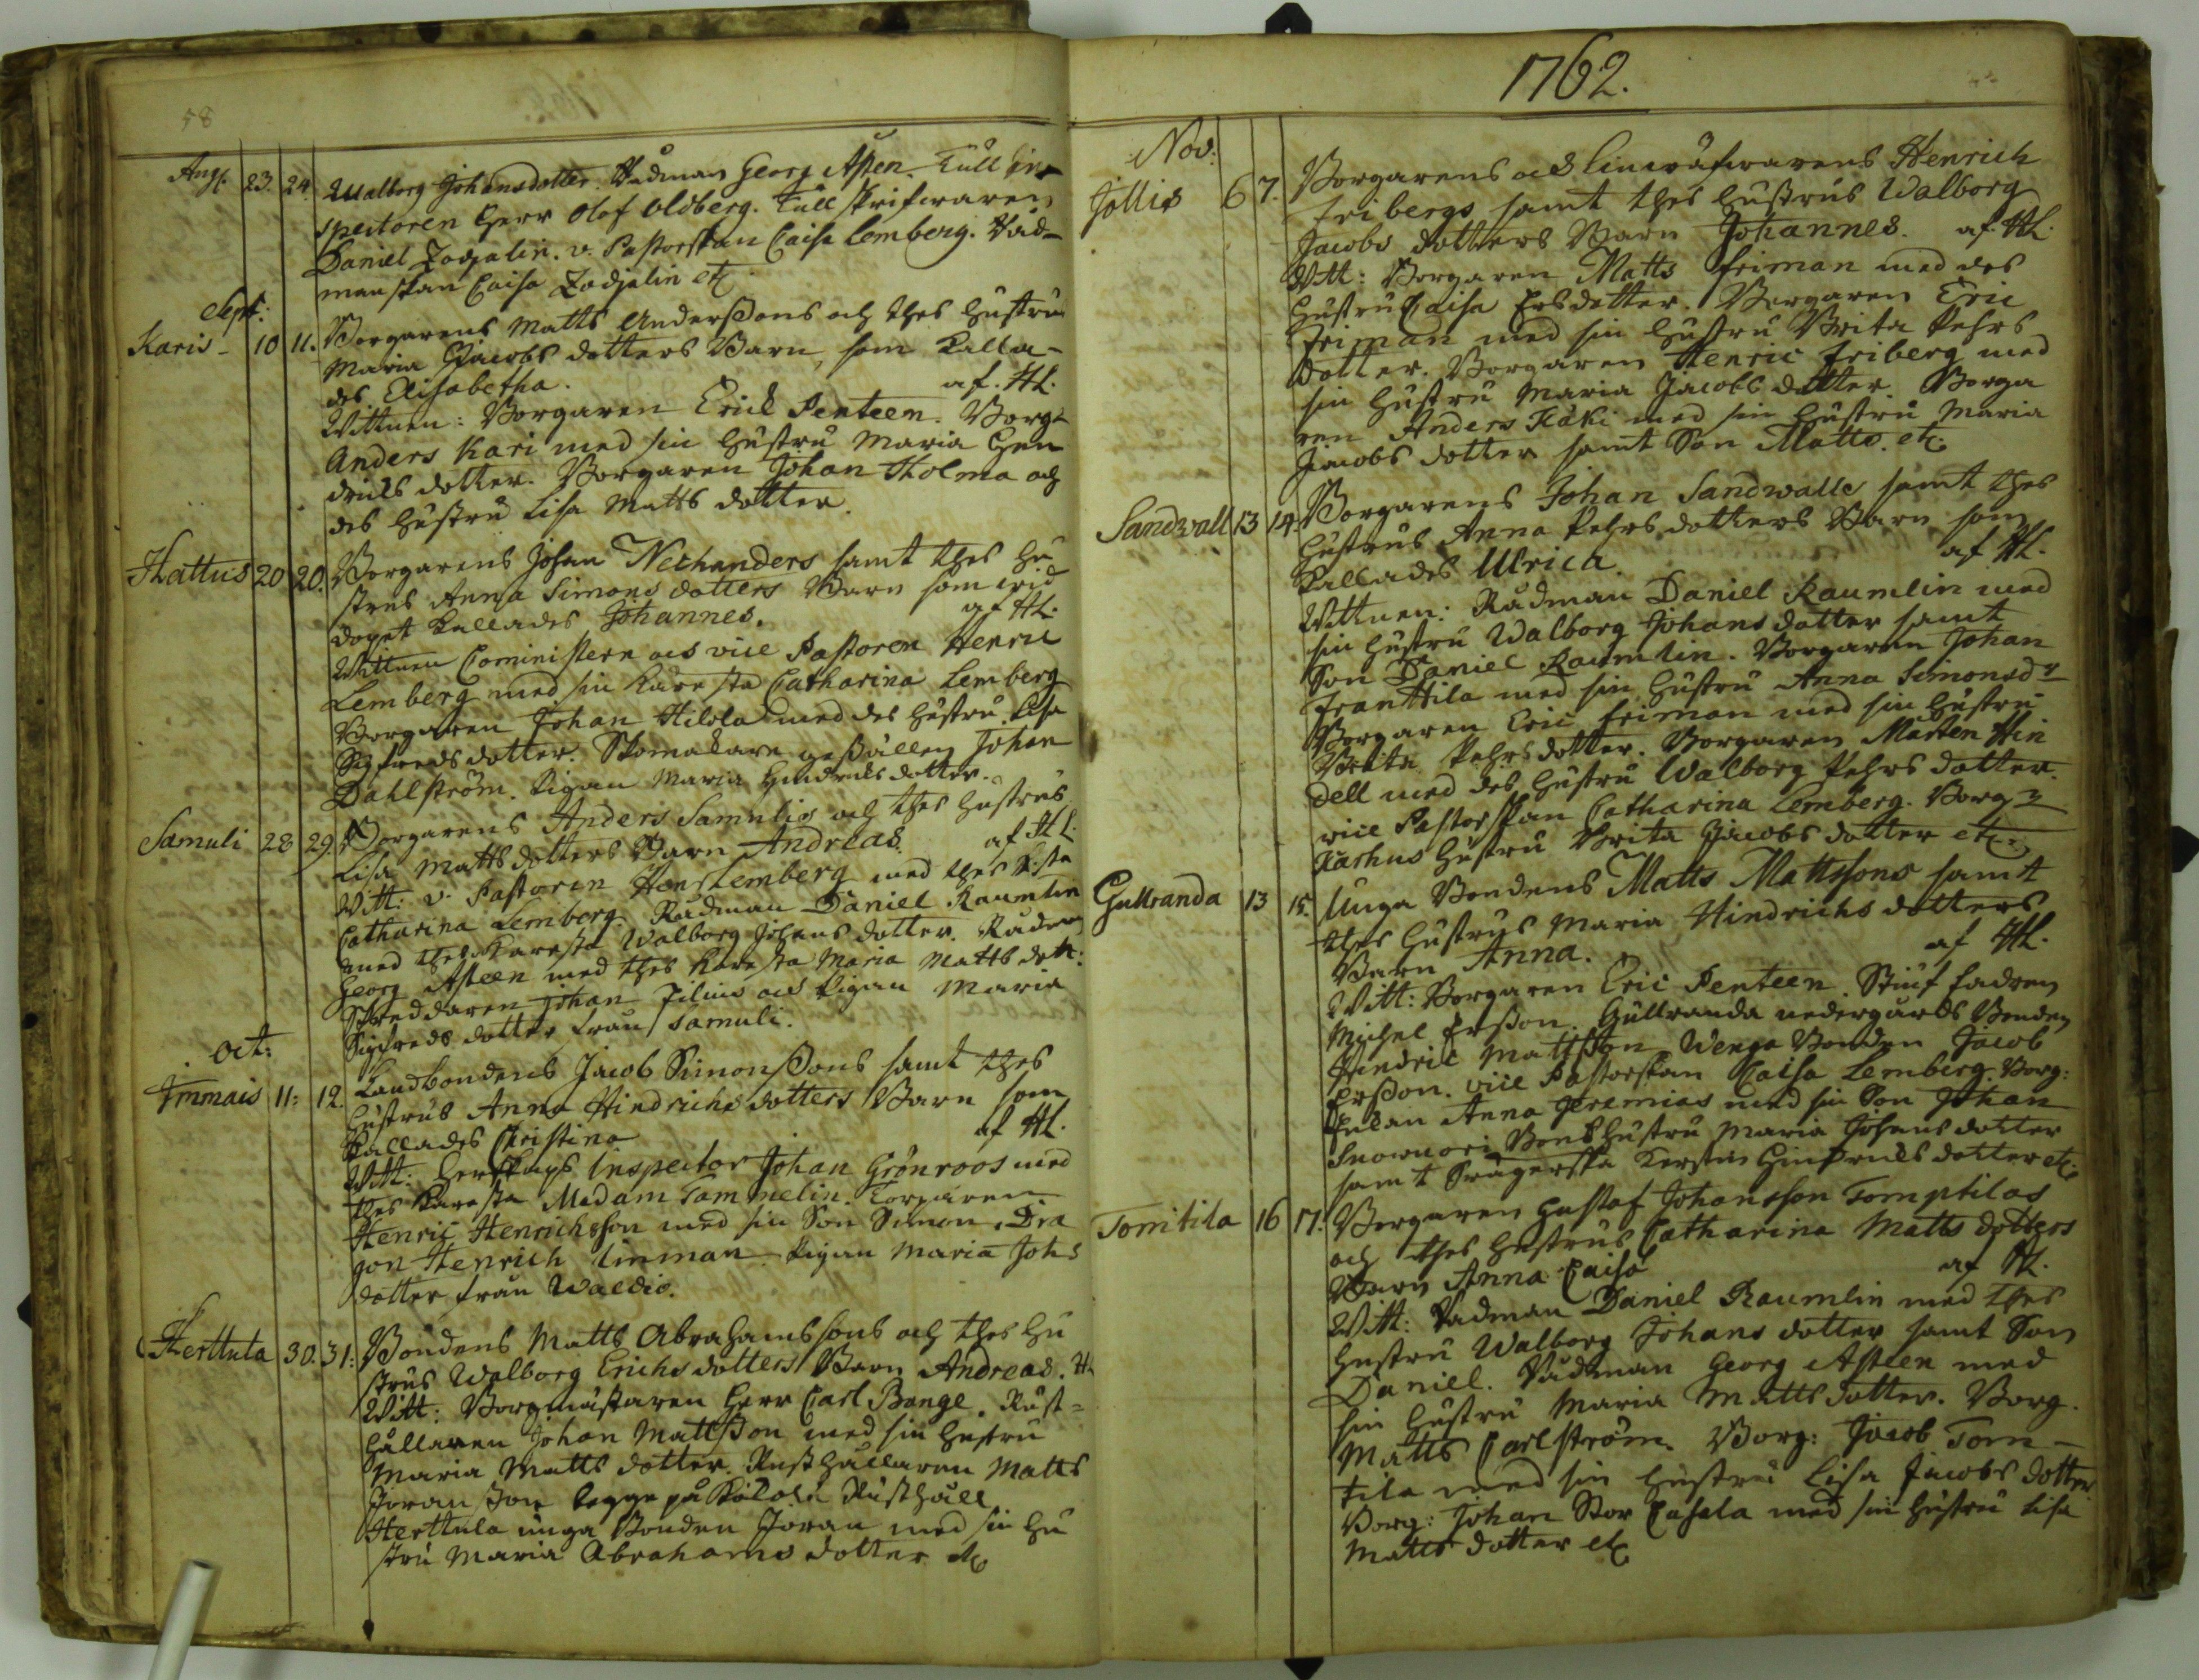 58
Aug. 23. 24. Walborg Johansdotter. Rådman Georg Asten. Tull in-
spectoren Herr Olof Oldberg. Tull skrifvaren
Daniel Zodjalin. v. Pastorskan Caisa Lemberg. Råd-
manskan Caisa Zodjalin etc
Sept:
Karis - 10 11. Borgarens Matts Anderssons och thes hustru
Maria Jacobs dotters Barn, som kalla-
des Elisabetha. af. HL.
Wittnen: Borgaren Erick Penteen. Borg:
Anders Kari med sin hustru Maria Hen
dricks dotter. Borgaren Johan Holma och
des hustru Lisa Matts dotter.
Hattus 20 20. Borgarens Johan Nechanders samt thes hu
strus Anna Simons dotters Barn som wid
dopet kallades Johannes. af HL.
Wittnen Comministern och vice Pastoren Henric
Lemberg med sin kära sta Catharina Lemberg
Borgaren Johan Hilola med des hustru Lisa
Sigfreds dotter. Skomakare gesällen Johan
Dahlström. Pigan Maria Hindricks dotter.
Samuli 28 29. Borgarens Anders Samulis och thes hustrus
Lisa Matts dotters Barn Andreas. af HL.
Witt: v. Pastoren Hens Lemberg med thes k:sta
Catharina Lemberg. Rådman Daniel Raumlin
med thes kära sta Walborg Johans dotter. Rådm
Georg Asteen med thes kära sta Maria Matts dott:
Skreddaren Johan Filius och Pigan Maria
Sigfreds dotter från Samuli.
Oct:
Immais 11: 12. Landbondens Jacob Simonssons samt thes
hustrus Anna Hindrichs dotters Barn som
kallades Christina af HL.
Witt: Herskaps Inspector Johan Grönroos med
thes kära sta Madam Tammelin. Torparen
Henric Henrichsson med sin Son Simon. Dra
gon Henrich Linman. Pigan Maria Johs
dotter från Waldis.
Herttula 30. 31: Bondens Matts Abrahamssons och thes hu
strus Walborg Erichs dotters Barn Andreas. H.
Witt: Borgmästaren Herr Carl Bange. Rust-
hållaren Johan Mattsson med sin hustru
Maria Matts dotter. Rusthållaren Matts
Jöransson begge på Kålola Rusthåll.
Herttula unga Bonden Jöran med sin hu
stru Maria Abrahams dotter etc
1762.
Nov:
Jollis 6 7. Borgarens och Linwäfwarens Henrich
Fribergs samt thes hustrus Walborg
Jacobs dotters Barn Johannes. af HL.
Witt: Borgaren Matts Friman med des
hustru Caisa Ersdotter. Borgaren Eric
Friman med sin hustru Brita Pehrs
dotter. Borgaren Henric Friberg med
sin hustru Maria Jacobs dotter. Borga
ren Anders Käki med sin hustru Maria
Jacobs dotter samt Son Matts. etc.
Sandwall 13 14. Borgarens Johan Sandwalls samt thes
hustrus Anna Pehrs dotters Barn som
kallades Ulrica. af HL.
Wittnen: Rådman Daniel Raumlin med
sin hustru Walborg Johans dotter samt
Son Daniel Raumlin. Borgaren Johan
Franttila med sin hustru Anna Simonsdr
Borgaren Eric Friman med sin hustru
Brita Pehrs dotter. Borgaren Mårten Hin
dell med des hustru Walborg Pehrs dotter.
vice Pastorskan Catharina Lemberg. Borg:
Karhus hustru Brita Jacobs dotter etc.
Gullranda 13 15. Unga Bondens Matts Mattssons samt
thes hustrus Maria Hindrichs dotters
Barn Anna. af HL.
Witt: Borgaren Eric Penteen. Stiuf fadren
Michel Ersson. Gullranda nedergårds Bonden
Hindric Mattsson Wenga Bonden Jacob
Ersson. vice Pastorskan Caisa Lemberg. Borg:
Enkan Anna Jeremias med sin Son Johan
Snownori Bons hustru Maria Johans dotter
samt Swägerska Kerstin Hindricks dotter etc.
Tomtila 16 17. Borgaren Gustaf Johansson Tomptilas
och thes hustrus Catharina Matts dotters
Barn Anna Caisa af HL.
Witt: Rådman Daniel Raumlin med thes
hustru Walborg Johans dotter samt Son
Daniel. Rådman Georg Asteen med
sin hustru Maria Matts dotter. Borg.
Matts Carlström. Borg: Jacob Tom-
tila med sin hustru Lisa Jacobs dotter
Borg: Johan Stor Casala med sin hustru Lisa
Matts dotter etc